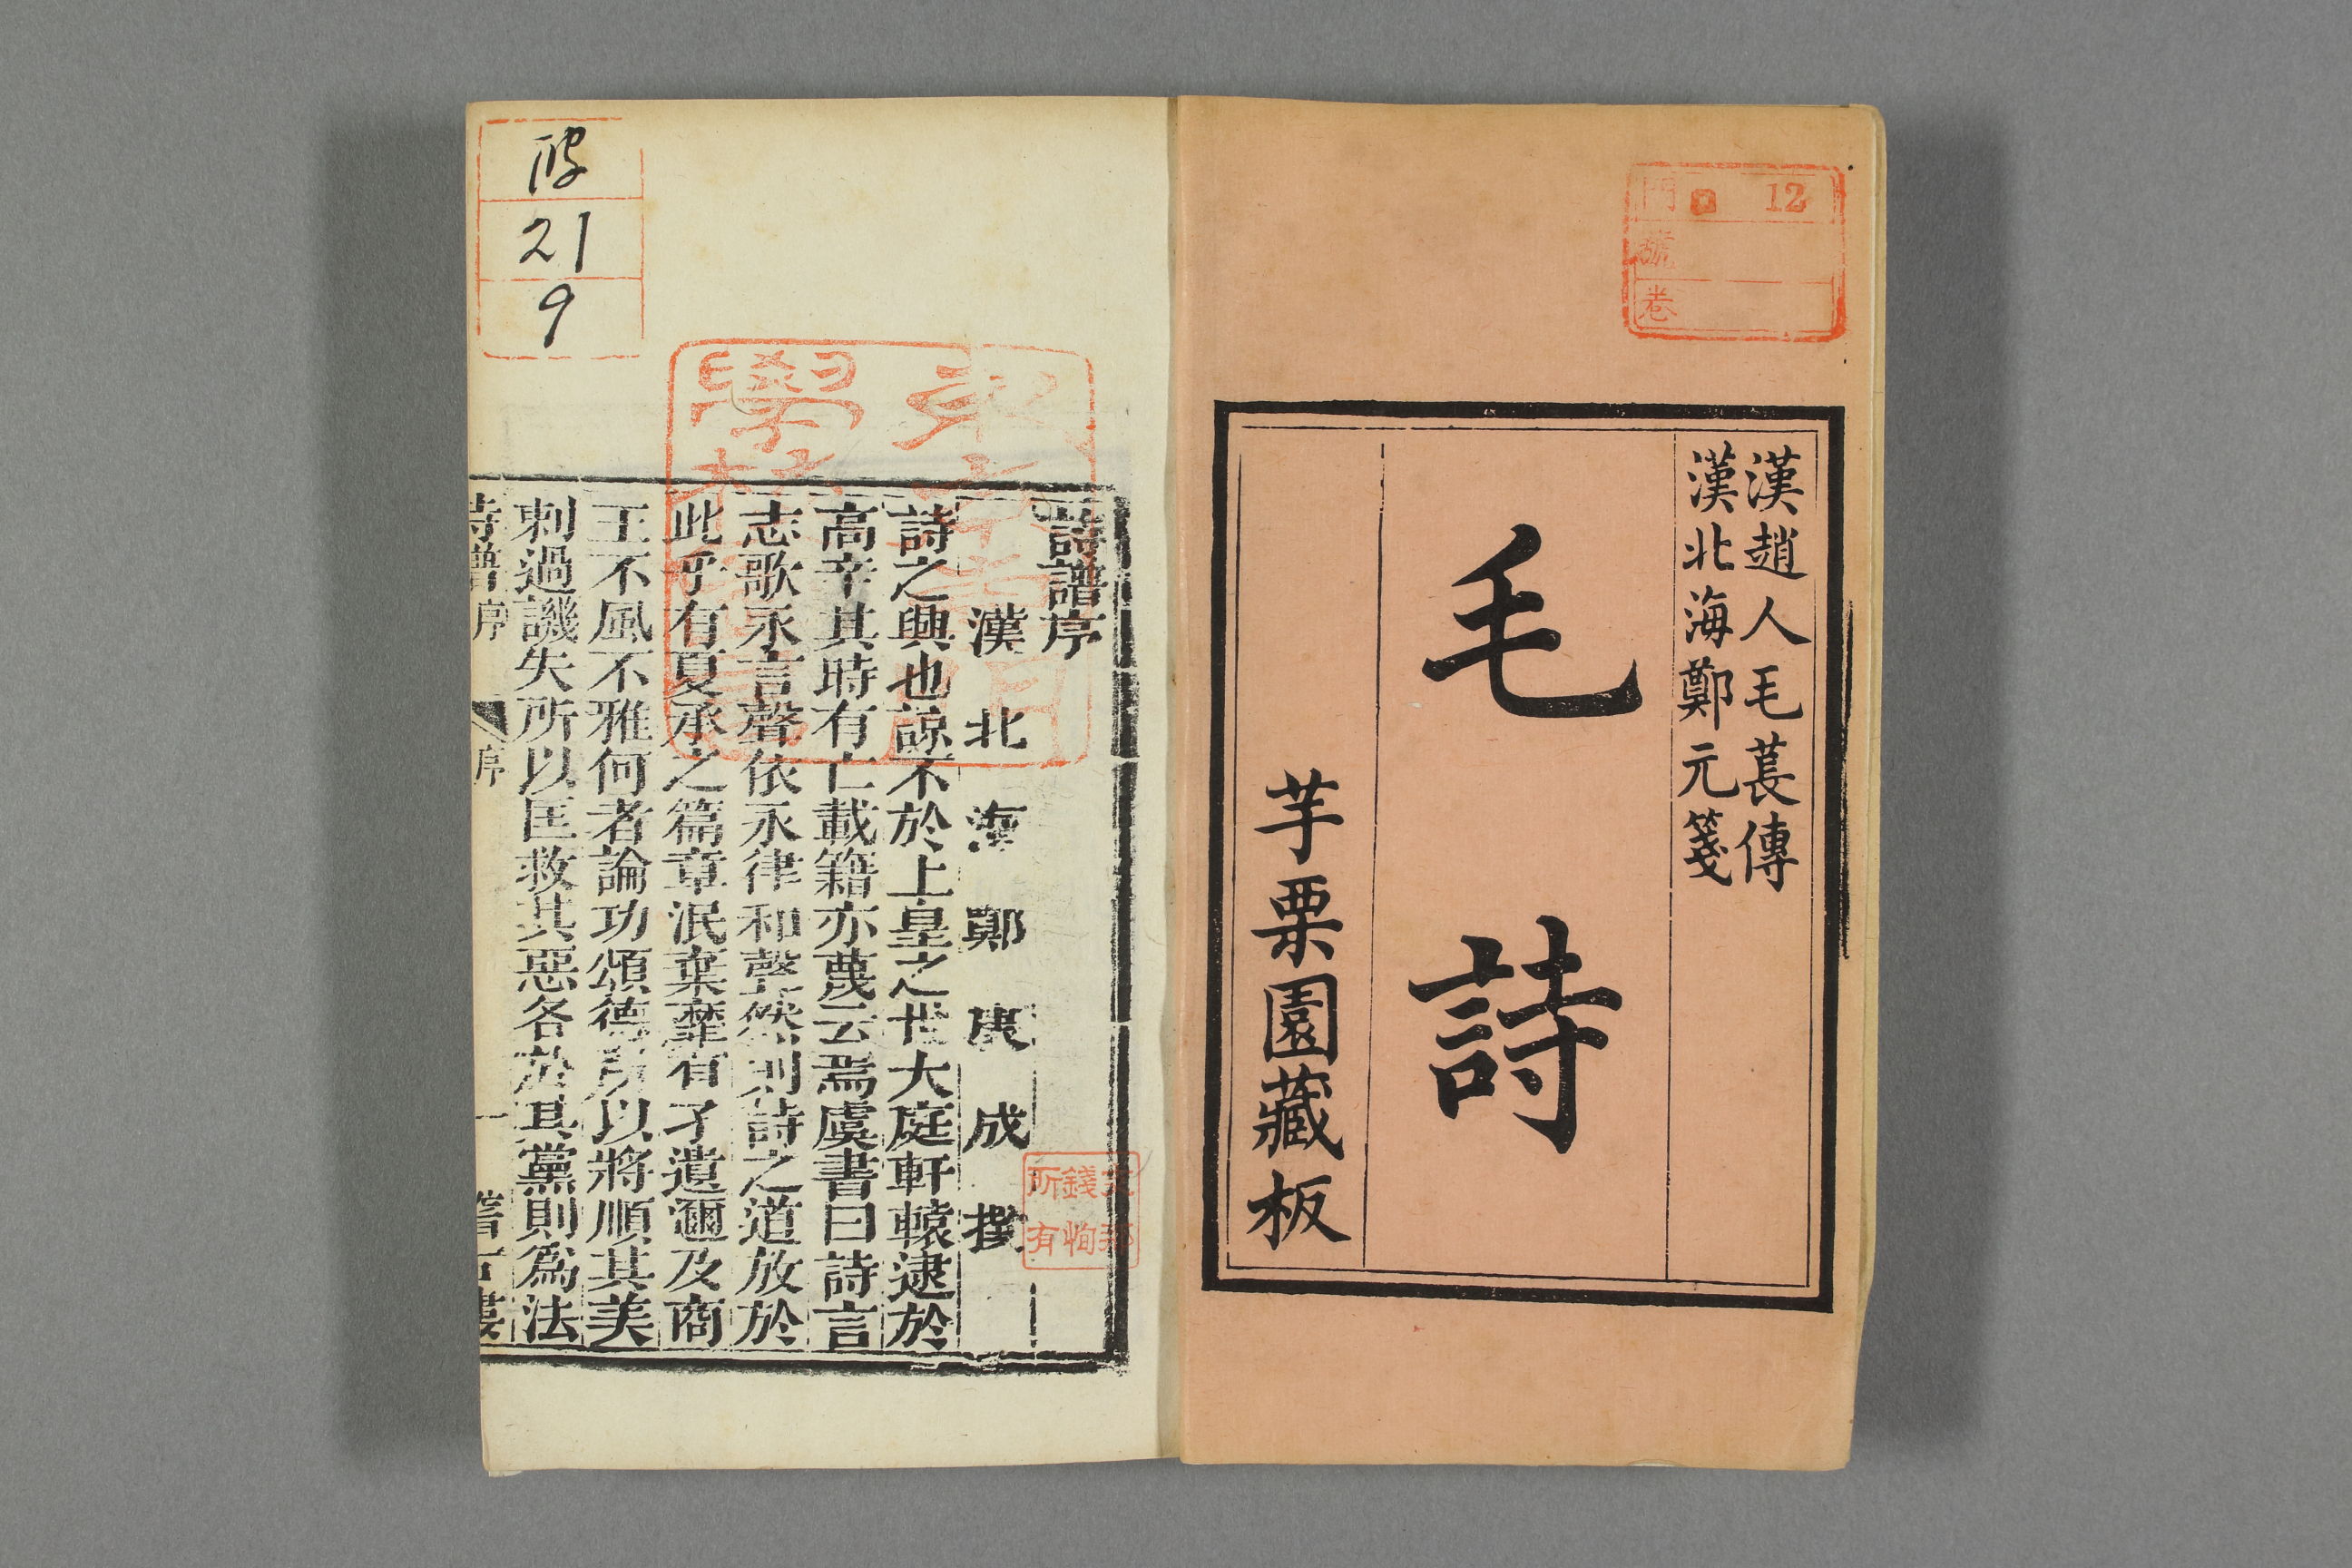 門 12
號
卷
漢趙人毛萇傳
漢北海鄭元箋
毛詩
芋栗園藏板
21
9
詩譜序
漢北海鄭康成撰
詩之興也諒不於上皇之世大庭軒轅逮於
高辛其時有亡載籍亦蔑云焉虞書曰詩言
志歌永言聲依永律和聲然則詩之道放於
此乎有夏承之篇章泯棄靡有孑遺邇及商
王不風不雅何者論功頌德所以將順其美
刺過譏失所以匡救其惡各於其黨則爲法
詩譜序 序 一
錢恂
所有